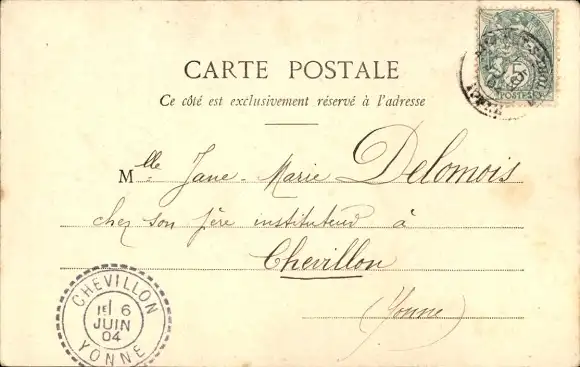 CARTE POSTALE
Ce côté est exclusivement réservé à l'adresse
Mlle Jane-Marie Delomois
chez son père instituteur à
Chevillon
(Yonne)
CHEVILLON
1E 6
JUIN
04
YONNE
5
POSTES